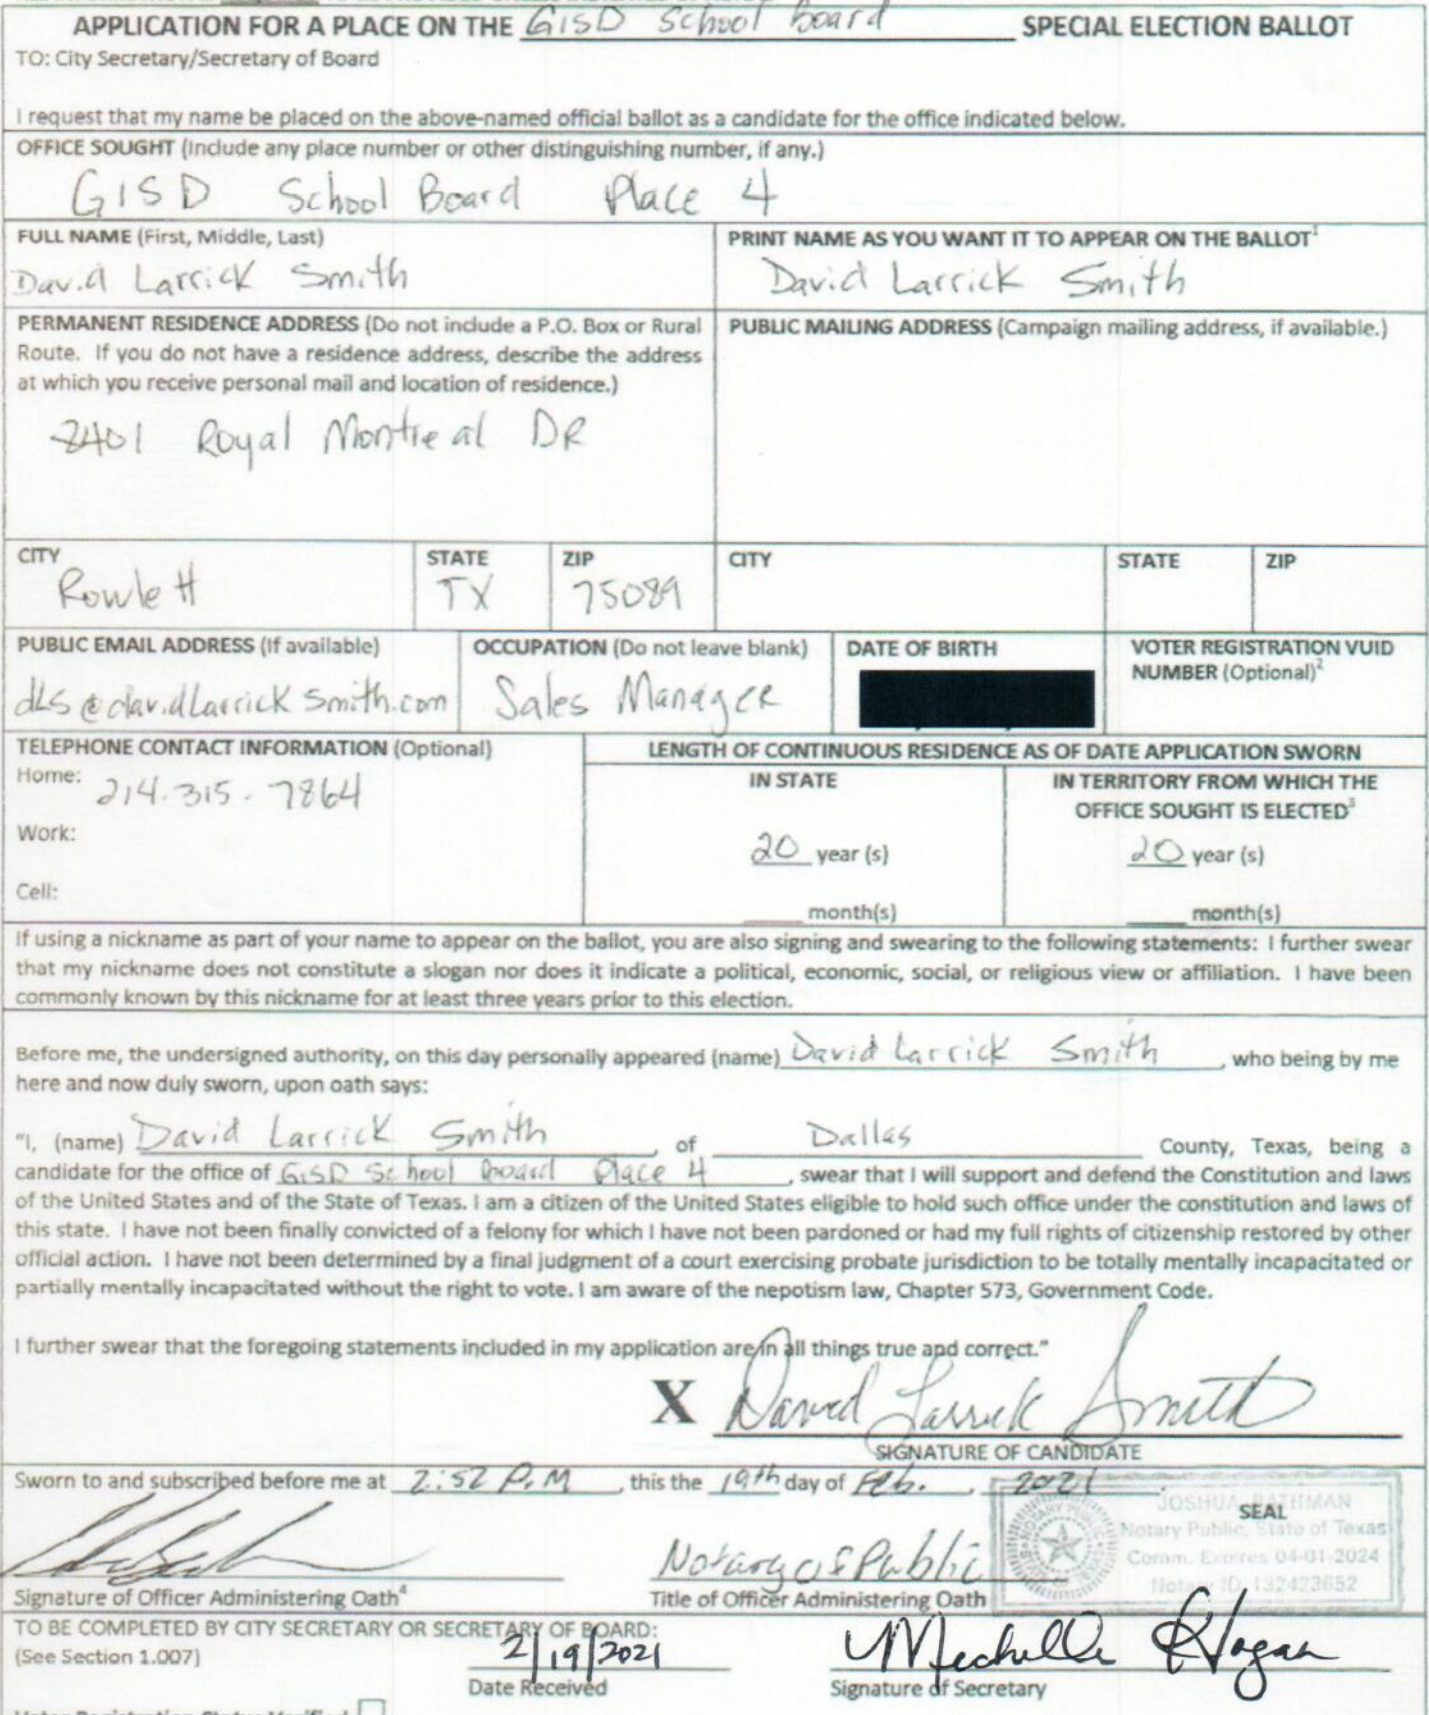 APPLICATION FOR A PLACE ON THE GISD School board SPECIAL ELECTION BALLOT
TO: City Secretary/Secretary of Board
I request that my name be placed on the above-named official ballot as a candidate for the office indicated below.
OFFICE SOUGHT (Include any place number or other distinguishing number, if any.)
GISD School Board Place 4
FULL NAME (First, Middle, Last)
David Larrick Smith
PRINT NAME AS YOU WANT IT TO APPEAR ON THE BALLOT1
David Larrick Smith
PERMANENT RESIDENCE ADDRESS (Do not include a P.O. Box or Rural
Route. If you do not have a residence address, describe the address
at which you receive personal mail and location of residence.)
2401 Royal Montreal DR
PUBLIC MAILING ADDRESS (Campaign mailing address, if available.)
CITY
Rowlett
STATE
TX
ZIP
75089
CITY
STATE
ZIP
PUBLIC EMAIL ADDRESS (If available)
dLS@davidLarrickSmith.com
OCCUPATION (Do not leave blank)
Sales Manager
DATE OF BIRTH
VOTER REGISTRATION VUID
NUMBER (Optional)2
TELEPHONE CONTACT INFORMATION (Optional)
Home: 214.315.7864
Work:
Cell:
LENGTH OF CONTINUOUS RESIDENCE AS OF DATE APPLICATION SWORN
IN STATE
20 year (s)
month(s)
IN TERRITORY FROM WHICH THE
OFFICE SOUGHT IS ELECTED3
20 year (s)
month(s)
If using a nickname as part of your name to appear on the ballot, you are also signing and swearing to the following statements: I further swear
that my nickname does not constitute a slogan nor does it indicate a political, economic, social, or religious view or affiliation. I have been
commonly known by this nickname for at least three years prior to this election.
Before me, the undersigned authority, on this day personally appeared (name) David Larrick Smith, who being by me
here and now duly sworn, upon oath says:
"I, (name) David Larrick Smith, of Dallas County, Texas, being a
candidate for the office of GISD School board Place 4, swear that I will support and defend the Constitution and laws
of the United States and of the State of Texas. I am a citizen of the United States eligible to hold such office under the constitution and laws of
this state. I have not been finally convicted of a felony for which I have not been pardoned or had my full rights of citizenship restored by other
official action. I have not been determined by a final judgment of a court exercising probate jurisdiction to be totally mentally incapacitated or
partially mentally incapacitated without the right to vote. I am aware of the nepotism law, Chapter 573, Government Code.
I further swear that the foregoing statements included in my application are in all things true and correct."
X David Larrick Smith
SIGNATURE OF CANDIDATE
Sworn to and subscribed before me at 2:52 P.M, this the 19th day of Feb., 2021.
SEAL
JOSHUA BATHMAN
Notary Public, State of Texas
Comm. Expires 04-01-2024
Notary ID 132423652
Signature of Officer Administering Oath4
Notary of Public
Title of Officer Administering Oath
TO BE COMPLETED BY CITY SECRETARY OR SECRETARY OF BOARD:
(See Section 1.007)
2/19/2021
Date Received
Mechelle Hogan
Signature of Secretary
Voter Registration Status Verified